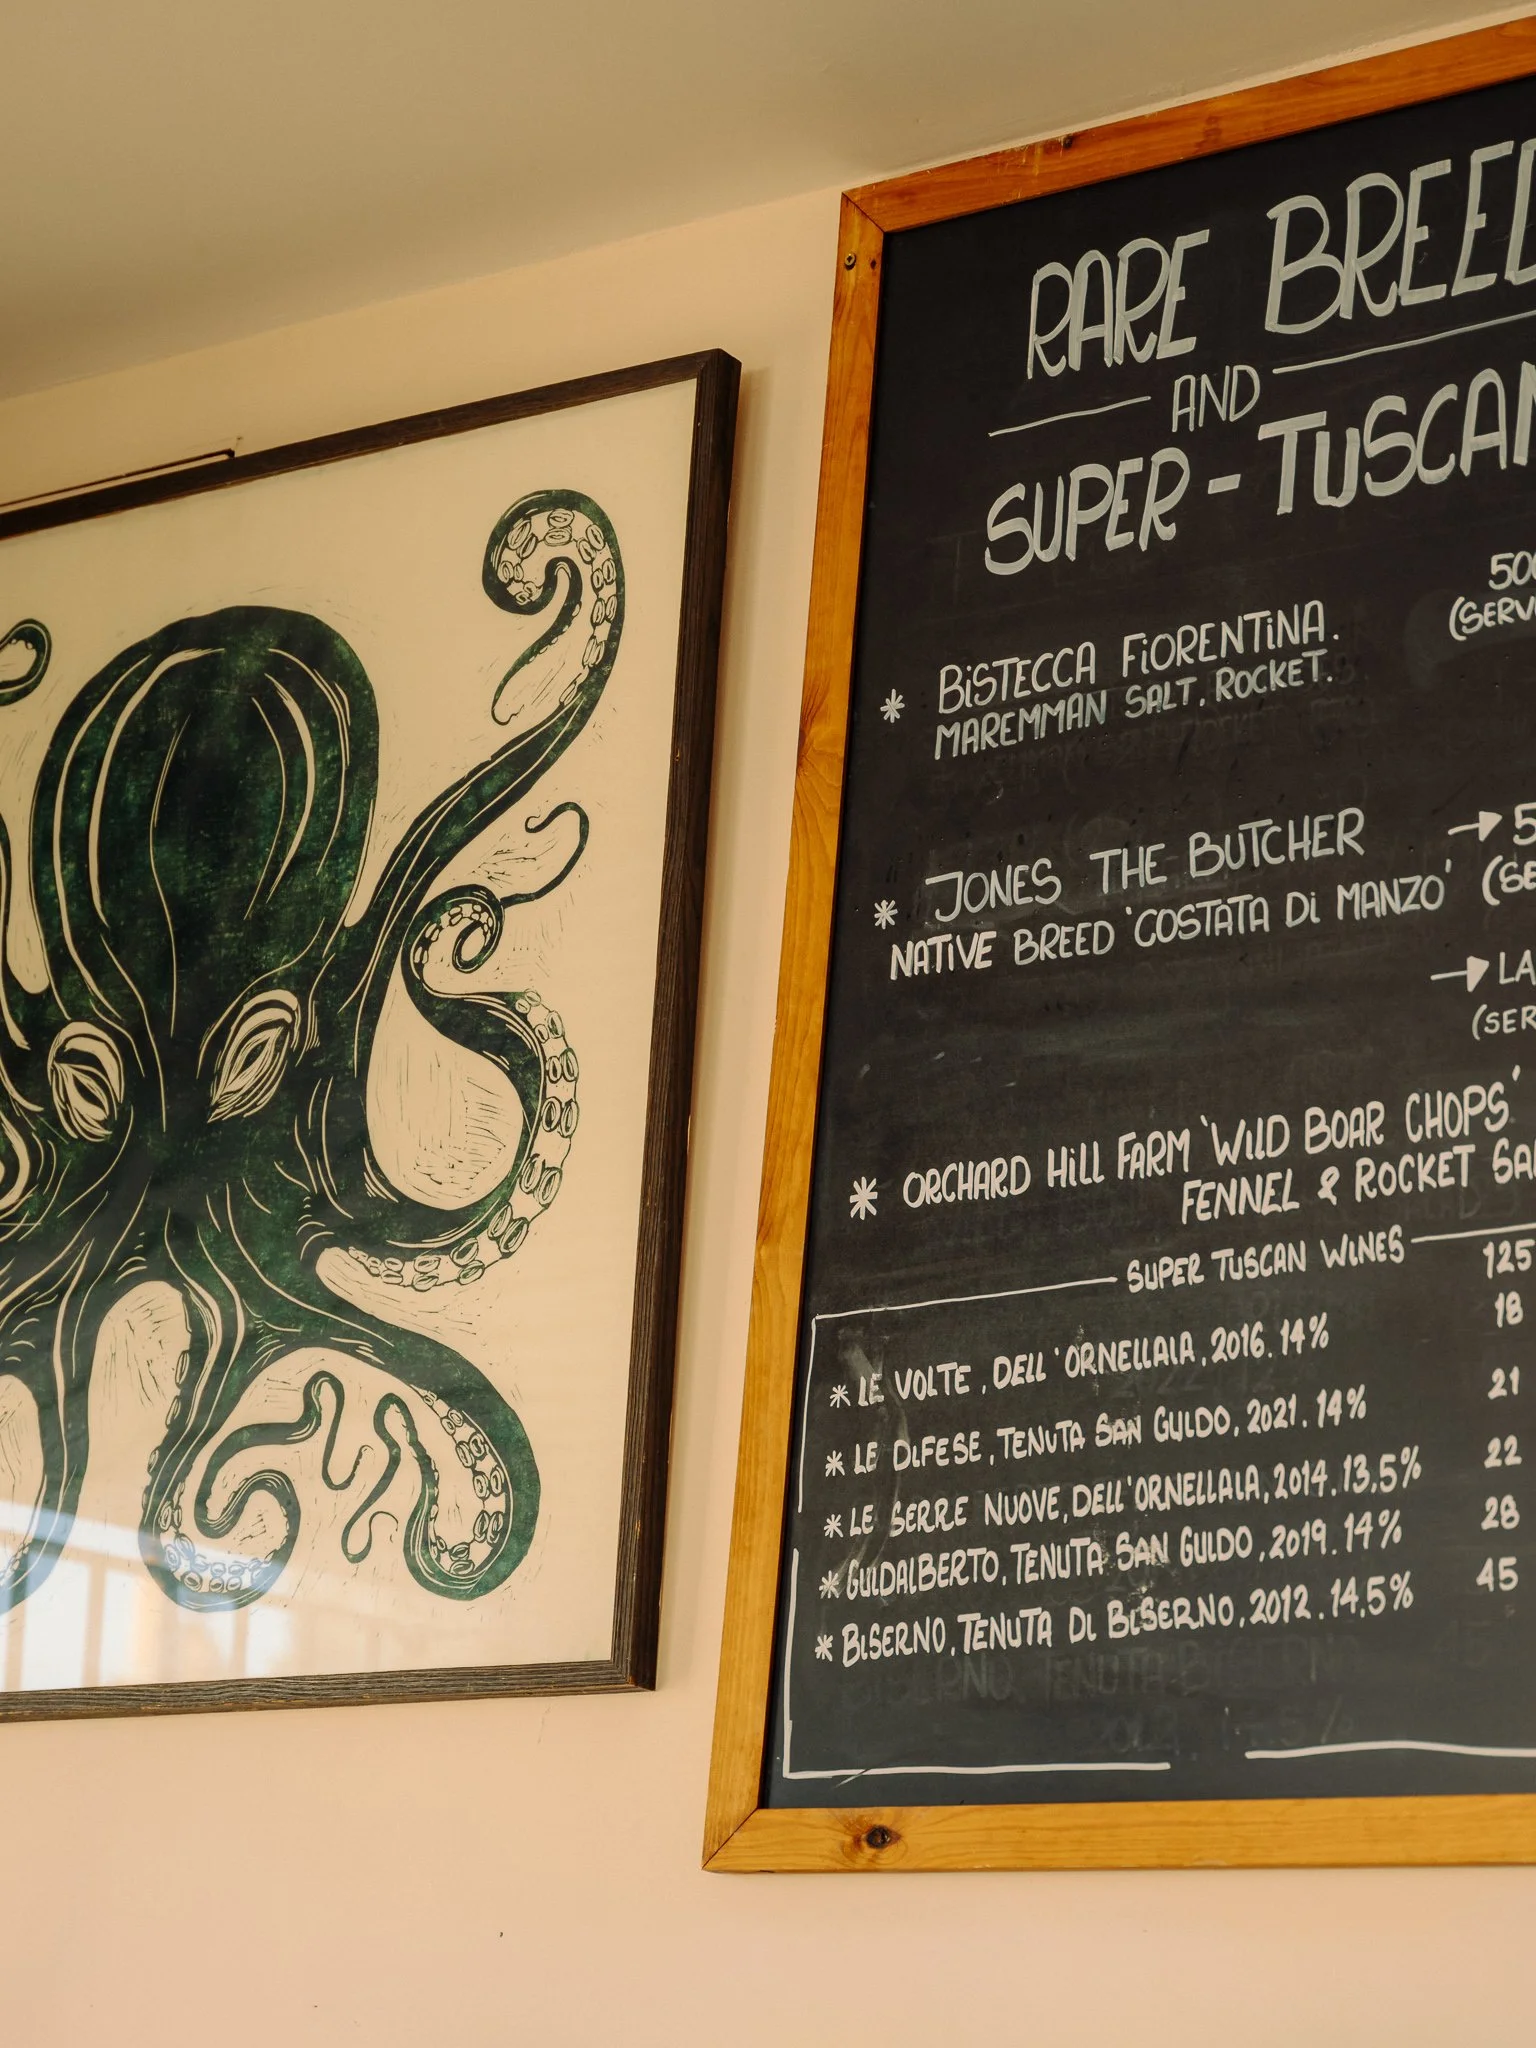 RARE BREED
AND
SUPER-TUSCAN
500
(SERV
* BISTECCA FIORENTINA.
MAREMMAN SALT, ROCKET.
* JONES THE BUTCHER → 5
NATIVE BREED 'COSTATA DI MANZO' (SE
→ LA
(SER
* ORCHARD HILL FARM 'WILD BOAR CHOPS'
FENNEL & ROCKET SA
SUPER TUSCAN WINES 125
* LE VOLTE, DELL'ORNELLAIA, 2016. 14% 18
* LE DIFESE, TENUTA SAN GUIDO, 2021. 14% 21
* LE SERRE NUOVE, DELL'ORNELLAIA, 2014. 13,5% 22
* GUIDALBERTO, TENUTA SAN GUIDO, 2019. 14% 28
* BISERNO, TENUTA DI BISERNO, 2012. 14,5% 45